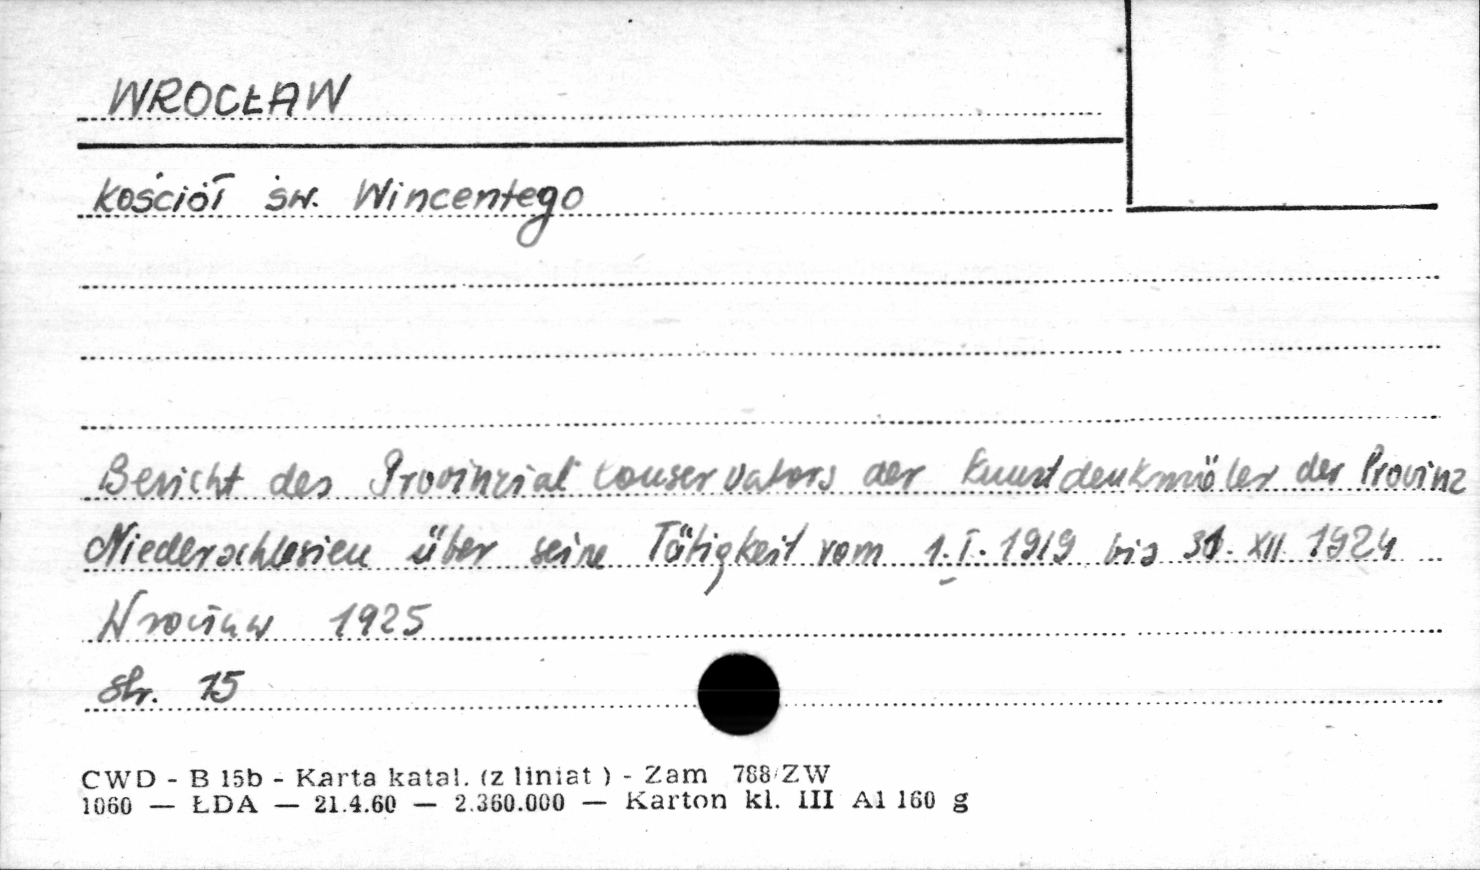 WROCŁAW
kościół św. Wincentego
Bericht des Provinzial conservators der Kunstdenkmäler der Provinz
Niederschlesien über seine Tätigkeit vom 1.I.1919 bis 31. XII 1924
Wrocław 1925
str. 15
CWD - B 15b - Karta katal. (z liniat ) - Zam 788/ZW
1060 — ŁDA — 21.4.60 — 2.360.000 — Karton kl. III A1 160 g